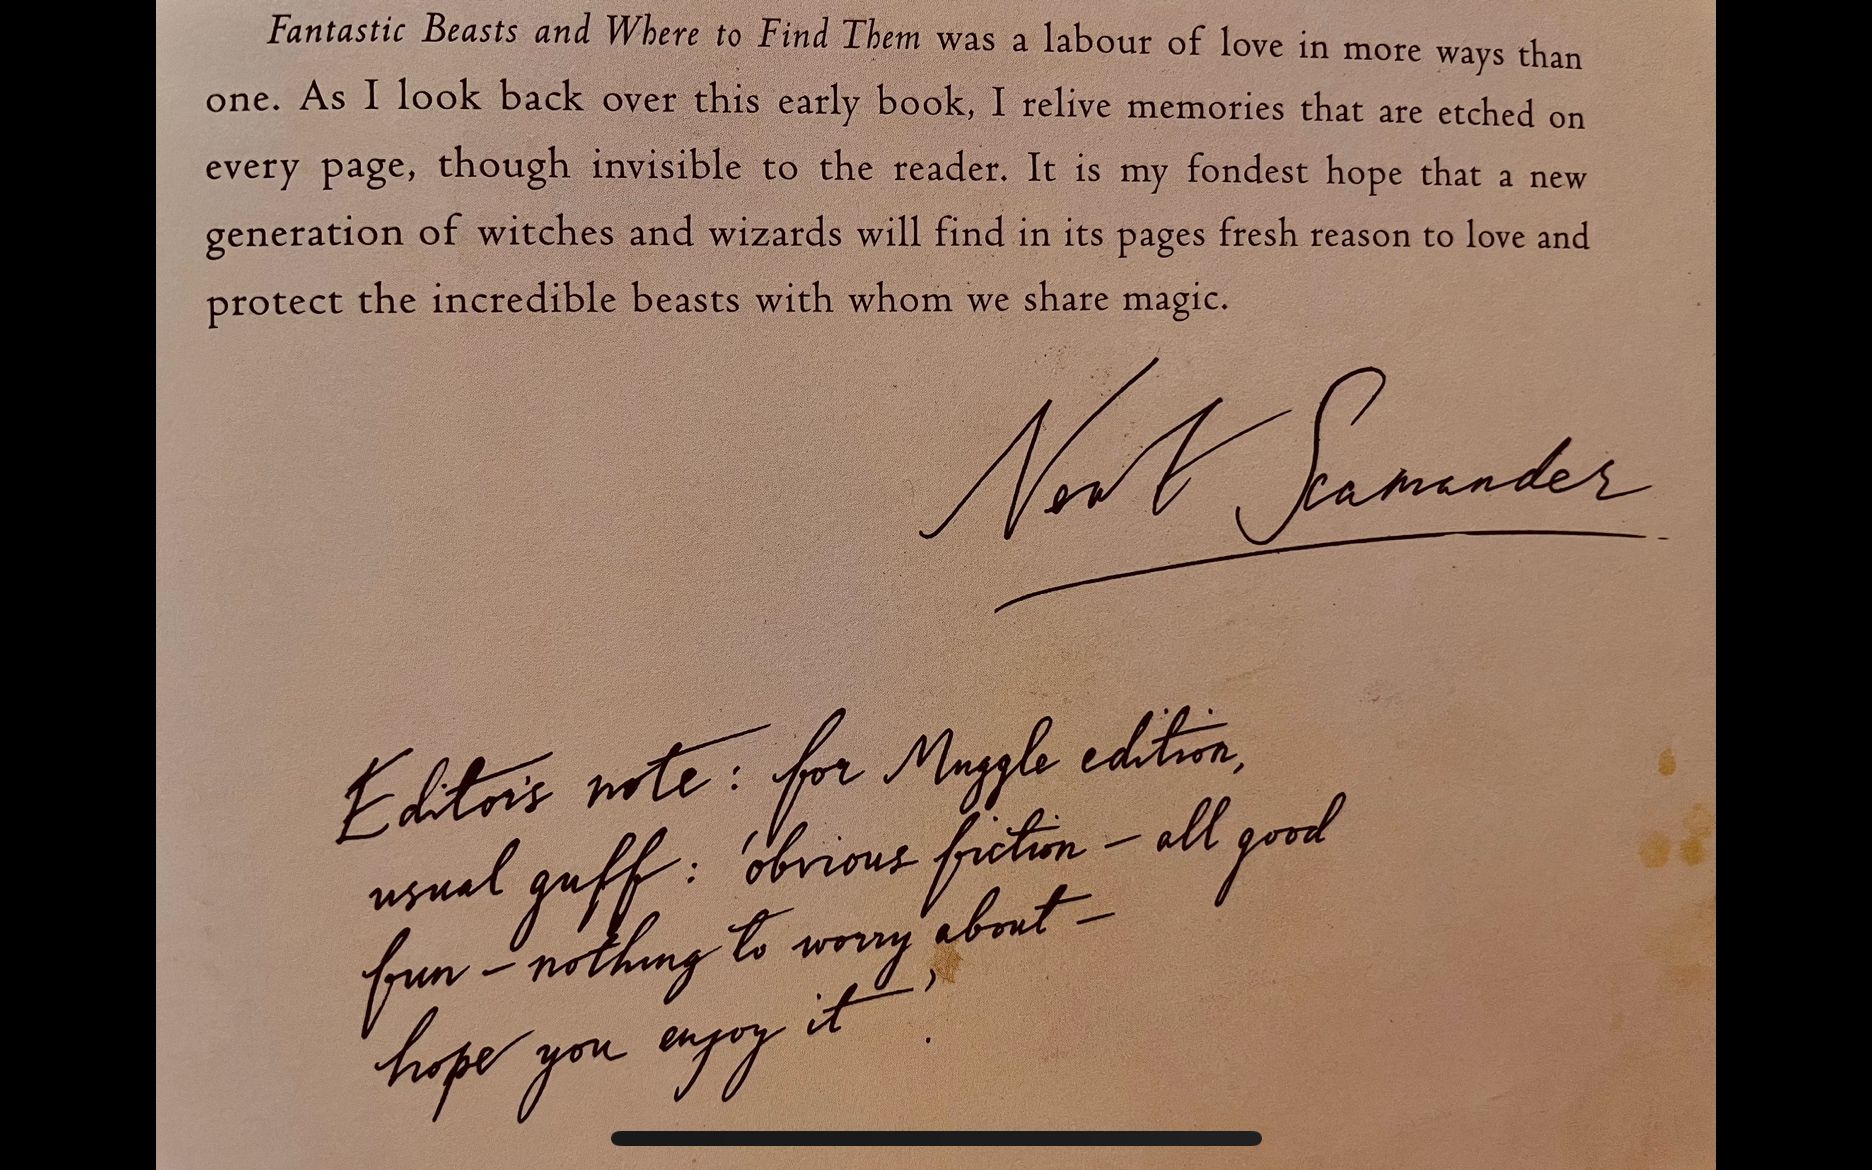 Fantastic Beasts and Where to Find Them was a labour of love in more ways than
one. As I look back over this early book, I relive memories that are etched on
every page, though invisible to the reader. It is my fondest hope that a new
generation of witches and wizards will find in its pages fresh reason to love and
protect the incredible beasts with whom we share magic.
Newt Scamander
Editor's note: for Muggle edition,
usual guff: 'obvious fiction – all good
fun – nothing to worry about –
hope you enjoy it'.